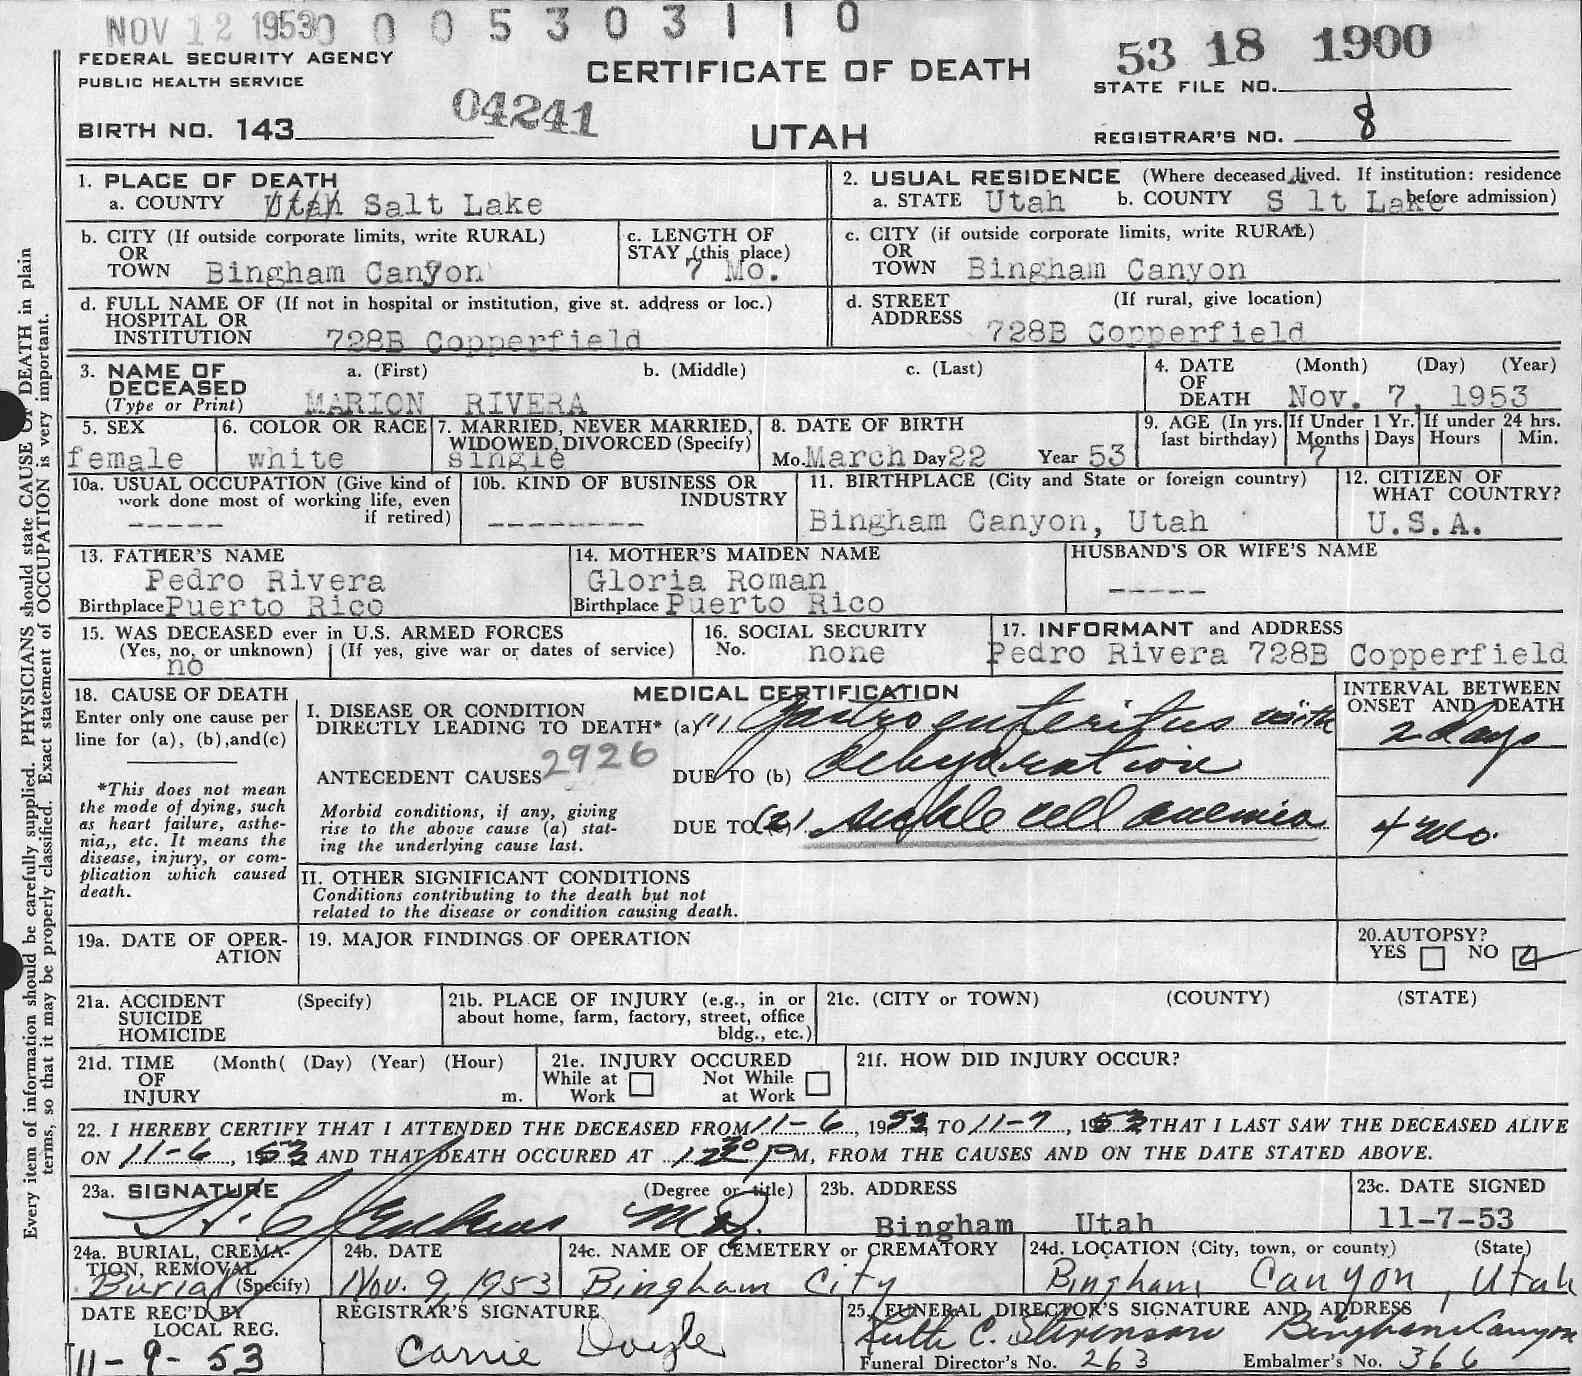 NOV 12 1953 0 0 0 5 3 0 3 1 1 0
FEDERAL SECURITY AGENCY
PUBLIC HEALTH SERVICE
CERTIFICATE OF DEATH
53 18 1900
STATE FILE NO.
BIRTH NO. 143
04241
UTAH
REGISTRAR'S NO. 8
1. PLACE OF DEATH
a. COUNTY Utah Salt Lake
2. USUAL RESIDENCE (Where deceased lived. If institution: residence before admission)
a. STATE Utah b. COUNTY S lt Lake
b. CITY (If outside corporate limits, write RURAL)
OR
TOWN Bingham Canyon
c. LENGTH OF
STAY (this place)
7 Mo.
c. CITY (if outside corporate limits, write RURAL)
OR
TOWN Bingham Canyon
d. FULL NAME OF (If not in hospital or institution, give st. address or loc.)
HOSPITAL OR
INSTITUTION 728B Copperfield
d. STREET (If rural, give location)
ADDRESS 728B Copperfield
3. NAME OF a. (First) b. (Middle) c. (Last)
DECEASED
(Type or Print) MARION RIVERA
4. DATE (Month) (Day) (Year)
OF
DEATH Nov. 7, 1953
5. SEX
female
6. COLOR OR RACE
white
7. MARRIED, NEVER MARRIED,
WIDOWED, DIVORCED (Specify)
single
8. DATE OF BIRTH
Mo. March Day 22 Year 53
9. AGE (In yrs. last birthday)
If Under 1 Yr.
Months Days
7
If under 24 hrs.
Hours Min.
10a. USUAL OCCUPATION (Give kind of
work done most of working life, even
if retired)
-----
10b. KIND OF BUSINESS OR
INDUSTRY
--------
11. BIRTHPLACE (City and State or foreign country)
Bingham Canyon, Utah
12. CITIZEN OF
WHAT COUNTRY?
U.S.A.
13. FATHER'S NAME
Pedro Rivera
Birthplace Puerto Rico
14. MOTHER'S MAIDEN NAME
Gloria Roman
Birthplace Puerto Rico
HUSBAND'S OR WIFE'S NAME
-----
15. WAS DECEASED ever in U.S. ARMED FORCES
(Yes, no, or unknown) (If yes, give war or dates of service)
no
16. SOCIAL SECURITY
No. none
17. INFORMANT and ADDRESS
Pedro Rivera 728B Copperfield
18. CAUSE OF DEATH
Enter only one cause per
line for (a), (b), and(c)
*This does not mean
the mode of dying, such
as heart failure, asthe-
nia,, etc. It means the
disease, injury, or com-
plication which caused
death.
MEDICAL CERTIFICATION
I. DISEASE OR CONDITION
DIRECTLY LEADING TO DEATH* (a) (1) Gastro enteritus with
ANTECEDENT CAUSES 2926 DUE TO (b) dehydration
Morbid conditions, if any, giving
rise to the above cause (a) stat-
ing the underlying cause last.
DUE TO (2) sickle cell anemia
II. OTHER SIGNIFICANT CONDITIONS
Conditions contributing to the death but not
related to the disease or condition causing death.
INTERVAL BETWEEN
ONSET AND DEATH
2 days
4 mo.
19a. DATE OF OPER-
ATION
19. MAJOR FINDINGS OF OPERATION
20. AUTOPSY?
YES NO
21a. ACCIDENT (Specify)
SUICIDE
HOMICIDE
21b. PLACE OF INJURY (e.g., in or
about home, farm, factory, street, office
bldg., etc.)
21c. (CITY or TOWN) (COUNTY) (STATE)
21d. TIME (Month( (Day) (Year) (Hour)
OF
INJURY m.
21e. INJURY OCCURED
While at Work Not While at Work
21f. HOW DID INJURY OCCUR?
22. I HEREBY CERTIFY THAT I ATTENDED THE DECEASED FROM 11-6, 1953, TO 11-7, 1953 THAT I LAST SAW THE DECEASED ALIVE
ON 11-6, 1953 AND THAT DEATH OCCURED AT 1 30 P M, FROM THE CAUSES AND ON THE DATE STATED ABOVE.
23a. SIGNATURE (Degree or title)
M.D.
23b. ADDRESS
Bingham Utah
23c. DATE SIGNED
11-7-53
24a. BURIAL, CREMA-
TION, REMOVAL
Burial (Specify)
24b. DATE
Nov. 9, 1953
24c. NAME OF CEMETERY or CREMATORY
Bingham City
24d. LOCATION (City, town, or county) (State)
Bingham Canyon, Utah
DATE REC'D BY
LOCAL REG.
11-9-53
REGISTRAR'S SIGNATURE
Carrie Doyle
25. FUNERAL DIRECTOR'S SIGNATURE AND ADDRESS
Ruth C. Stevenson Bingham Canyon
Funeral Director's No. 263 Embalmer's No. 366
Every item of information should be carefully supplied. PHYSICIANS should state CAUSE OF DEATH in plain
terms, so that it may be properly classified. Exact statement of OCCUPATION is very important.